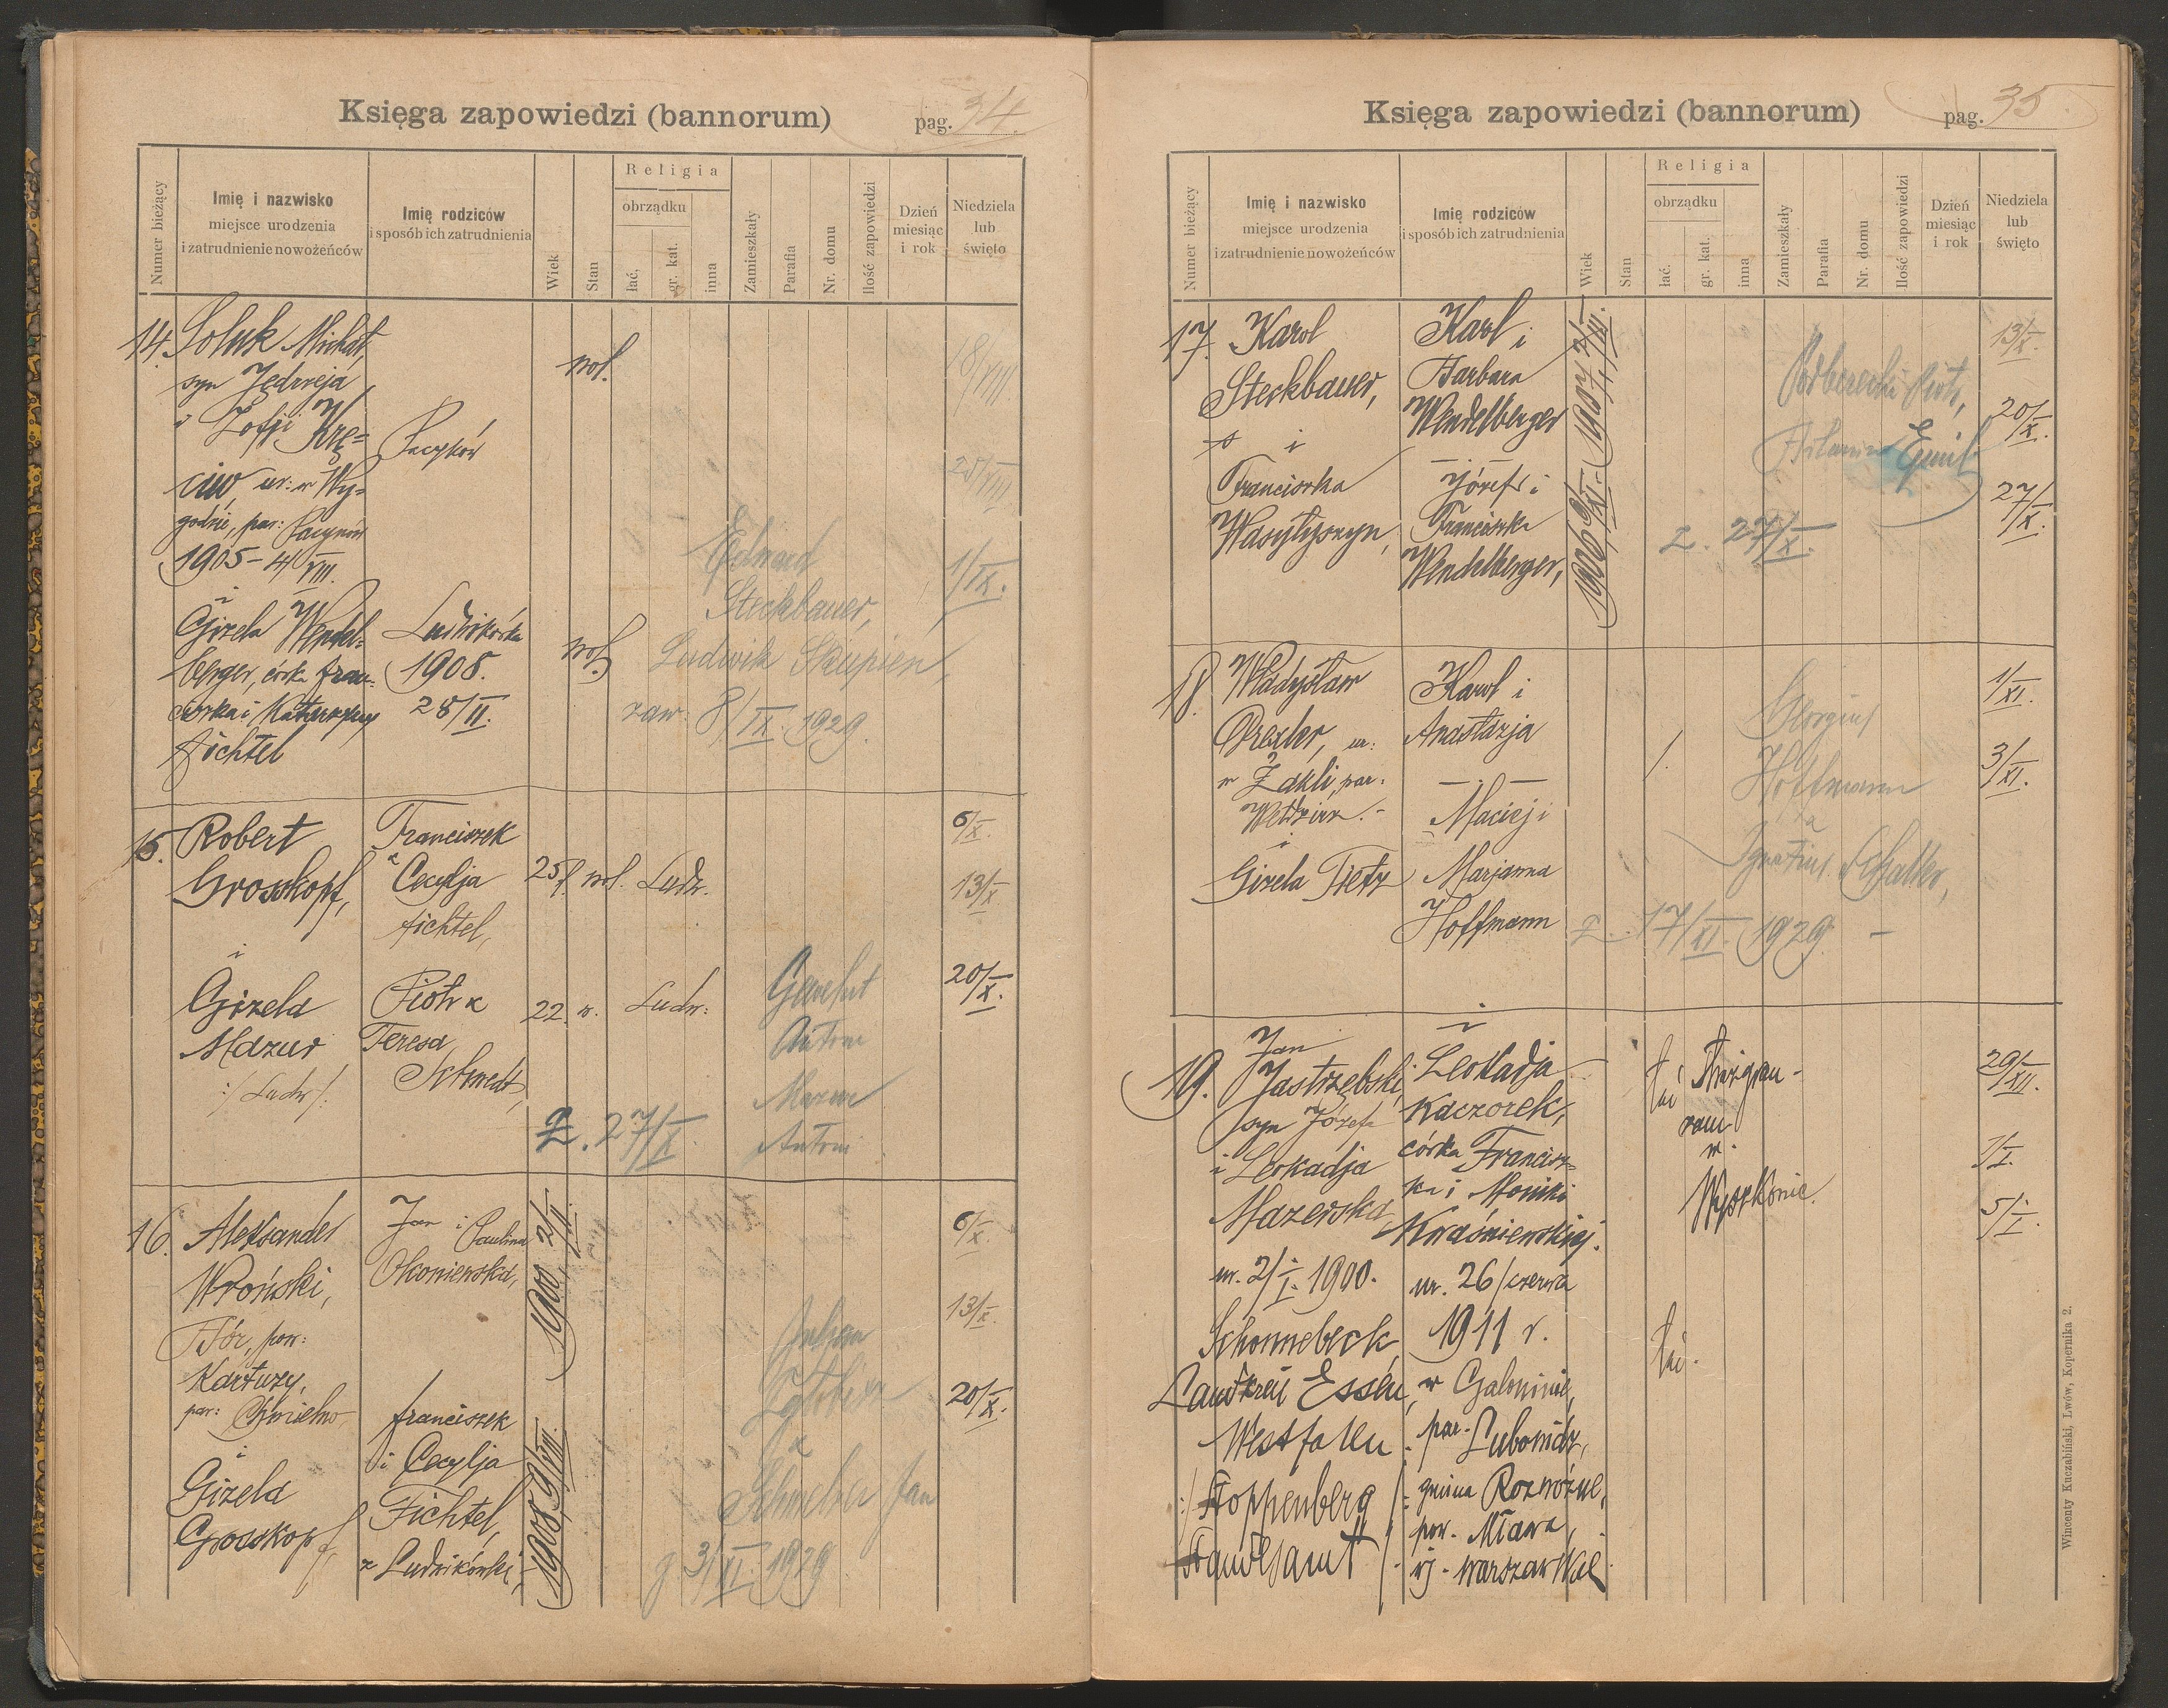 Księga zapowiedzi (bannorum)
pag. 34.
Numer bieżący
Imię i nazwisko
miejsce urodzenia
i zatrudnienie nowożeńców
Imię rodziców
i sposób ich zatrudnienia
Wiek
Stan
Religia
obrządku
łać,
gr. kat.
inna
Zamieszkały
Parafia
Nr. domu
Ilość zapowiedzi
Dzień
miesiąc
i rok
Niedziela
lub
święto
14. Soluk Michał,
syn Jędrzeja
i Zofji Krę=
ciw, ur: w Wy=
godzie, par: Pacyków
1905 - 4/VIII.
Pacyków
wol.
18/VIII
25/VIII
1/IX.
i
Gizela Wendel-
berger, córka Fran-
ciszka i Katarzyny
Fichtel
Ludwikówka
1908.
28/II.
wol.
Edward
Steckbauer,
Ludwik Skupień,
zaw. 8/IX. 1929.
15. Robert
Grosskopf,
Franciszek
a Cecylja
Fichtel,
25 wol. Ludw.
6/X.
13/X
20/X.
i
Gizela
Mazur
:/ Ludw /:
Piotr a
Teresa
Schmidt,
22. w. Ludw:
Antoni
Mazur
Antoni
Z. 27/X.
16. Aleksander
Wroński,
Bór, pow:
Kartuzy,
par: Chmielno
Jan i Paulina
Okoniewska,
1900 2/II.
6/X.
13/X.
20/X.
i
Gizela
Grosskopf,
Franciszek
i Cecylja
Fichtel,
z Ludwikówki,
1908 9/VIII.
a
Jan
3/XI. 1929
Księga zapowiedzi (bannorum)
pag. 35
Numer bieżący
Imię i nazwisko
miejsce urodzenia
i zatrudnienie nowożeńców
Imię rodziców
i sposób ich zatrudnienia
Wiek
Stan
Religia
obrządku
łać.
gr. kat.
inna
Zamieszkały
Parafia
Nr. domu
Ilość zapowiedzi
Dzień
miesiąc
i rok
Niedziela
lub
święto
17. Karol
Steckbauer,
i
Franciszka
Wasylyszyn,
Karol i
Barbara
Wendelberger
Józef i
Franciszka
Wendelberger,
Piotr,
Emil
Z. 27/X.
13/X.
20/X.
27/X.
18. Władysław
Drexler, ur:
w Zakli, par.
Wełdzirz.-
i
Gizela Tietz
Karol i
Anastazja
Maciej i
Marjanna
Hoffmann
Georgius
Hoffmann
a
Ignatius Schaller,
17/XI. 1929. -
1/XI.
3/XI.
19. Jan
Jastrzębski,
syn Józefa
i Leokadja
Mazerska
ur. 2/I. 1900.
Schonnebeck
Landkreis Essen,
Westfalen
:/ Stoppenberg /:
Standesamt /.
i
Leokadja
Kaczorek,
córka Francisz-
ka i Moniki
Kraśniewskiej.
ur. 26/czerwca
1911 r.
w Galominie,
par. Lubomidz,
gmina Rozwozine,
pow. Mława,
wj. warszawskie
łać
zam
w
Wyszkowie.
łać.
29/XII.
1/I.
5/I.
Wincenty Kuczabiński, Lwów, Kopernika 2.